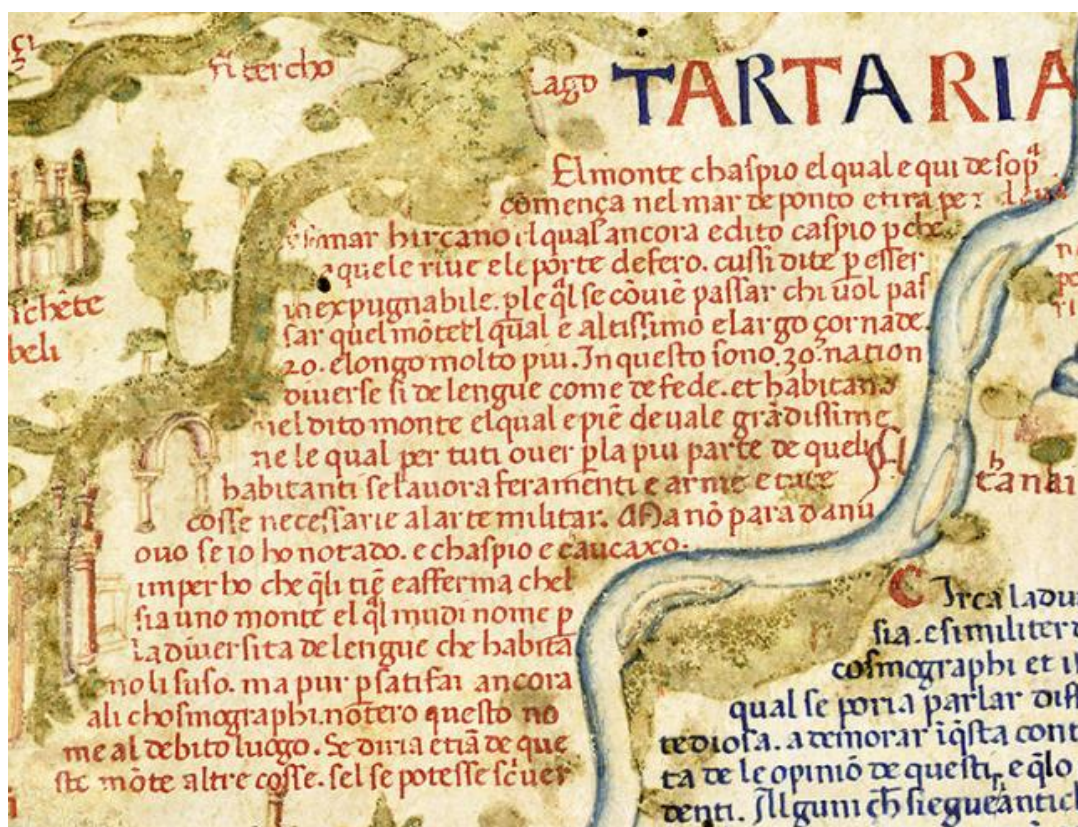 fl tercho
Lago
TARTARIA
El monte chaspio el qual e qui de sopͣ
cōmença nel mar de ponto e tira per
mar hircano el qual ancora e dito caspio p che
a quele rive e le porte de fero. cussi dite p esser
inexpugnabile. p le ql se cōviē passar chi vol pas
sar quel mōte el qual e altissimo e largo çornade
20. e longo molto piu. In questo sono .30. nation
diverse si de lengue come de fede. et habitano
nel dito monte el qual e piē de vale grādissime
ne le qual per tuti over p la piu parte de queli
habitanti se lavora feramenti e arme e tute
cosse necessarie al arte militar. Ma nō para danu
ovo se io ho notado. e chaspio e caucaxo.
imper ho che qli tiē e afferma chel
sia uno monte el ql mudi nome p
la diversita de lengue che habita
no li suso. ma pur p satifar ancora
ali chosmographi. notero questo no
me al debito luogo. Se diria etiā de que
ste mōte altre cosse. sel se potesse sc̄ver
rchēte
beli
fl
tanai
Circa la du
sia. e similiter d
cosmographi et i
qual se poria parlar diff
tediosa. a demorar i qsta cont
ta de le opiniō de questi, e qlo
denti. Alguni ch siegue antich